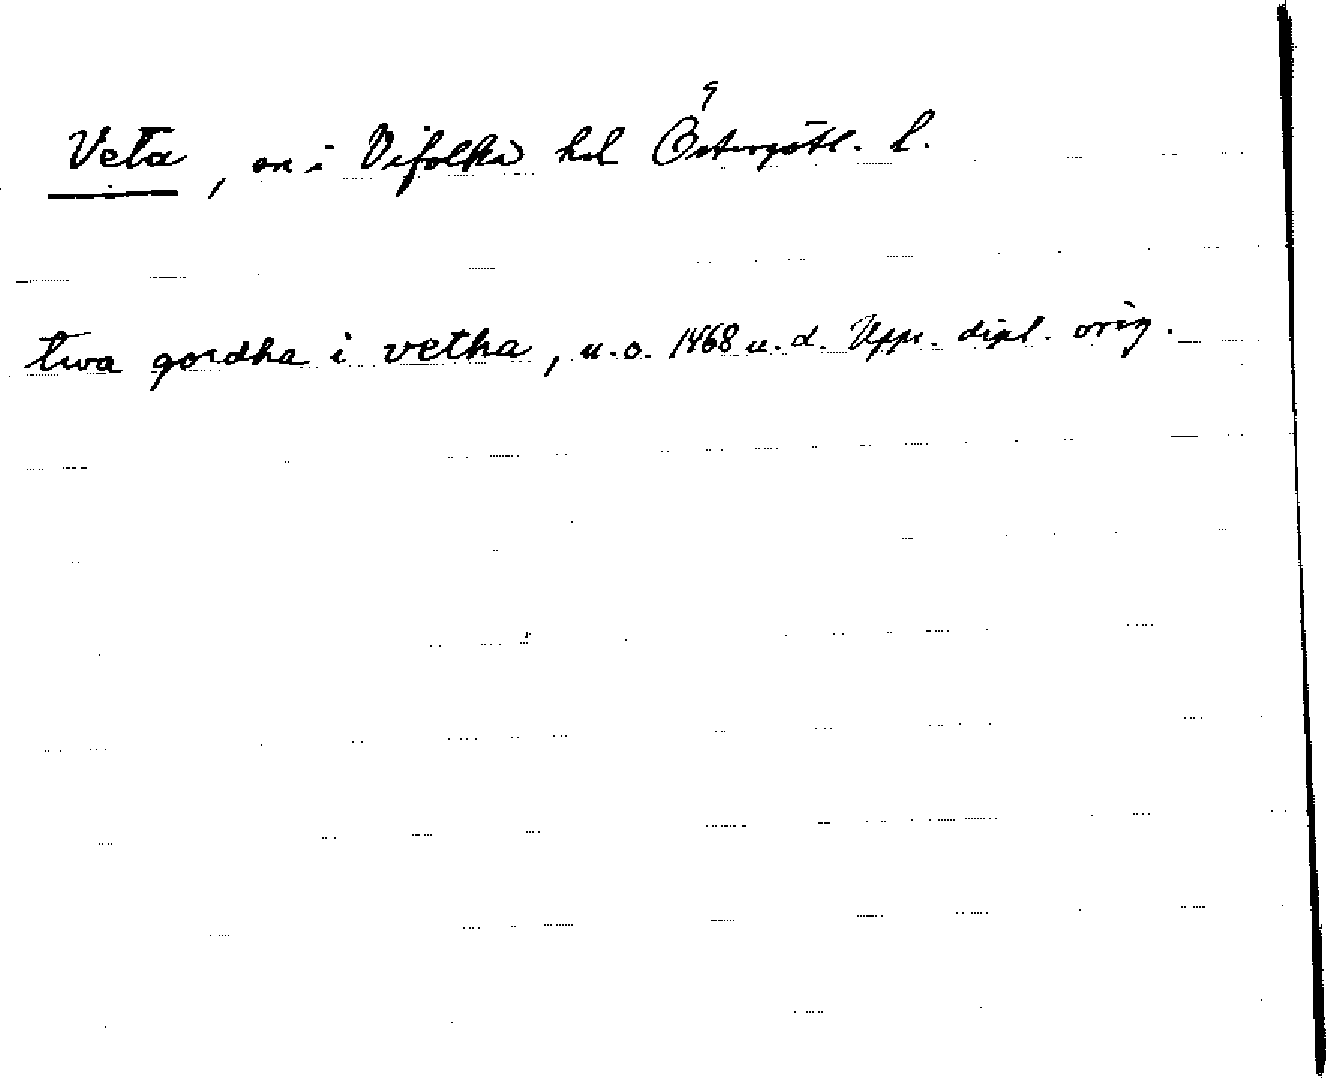 Veta, sn i Vifolka hd Östergötl. l.
twa gordha i vetha, u.o. 1468 u.d. Upps. dipl. orig.